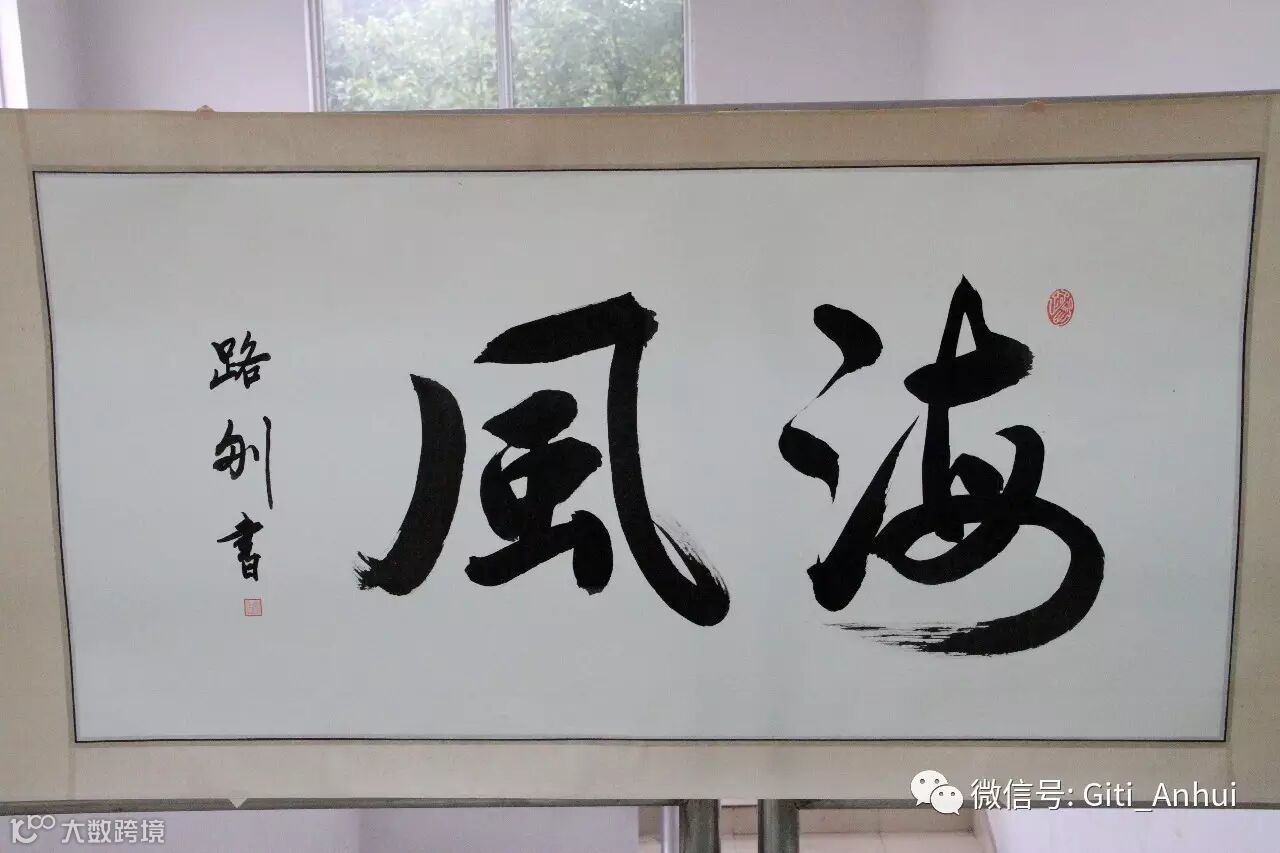 海風
路刚書
微信号: Giti_Anhui
大数跨境